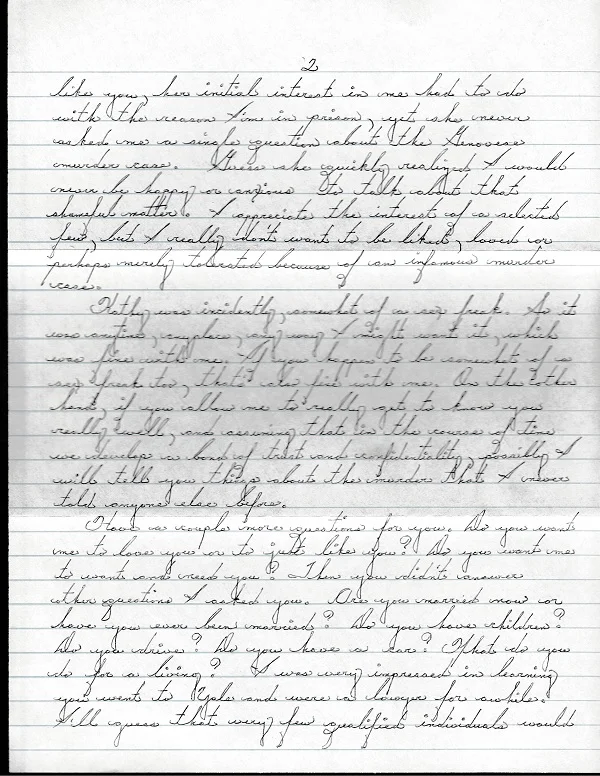 2
like you, her initial interest in me had to do
with the reason I'm in prison, yet she never
asked me a single question about the Genovese
murder case. Guess she quickly realized I would
never be happy or anxious to talk about that
shameful matter. I appreciate the interest of a selected
few, but I really don't want to be liked, loved or
perhaps merely tolerated because of an infamous murder
case.
Kathy was incidently, somewhat of a sex freak. So it
was anytime, anyplace, any way I might want it, which
was fine with me. If you happen to be somewhat of a
sex freak too, that's also fine with me. On the other
hand, if you allow me to really get to know you
really well, and assuming that in the course of time
we develop a bond of trust and confidentiality, possibly I
will tell you things about the murder that I never
told anyone else before.
Have a couple more questions for you. Do you want
me to love you or to just like you? Do you want me
to want and need you? Then you didn't answer
other questions I asked you. Are you married now or
have you ever been married? Do you have children?
Do you drive? Do you have a car? What do you
do for a living? I was very impressed in learning
you went to Yale and were a lawyer for awhile.
I'll guess that very few qualified individuals would